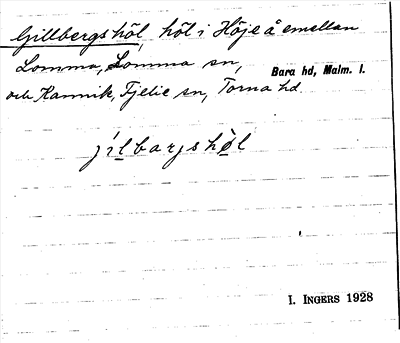 Gillbergshöl, höl i Höje å emellan
Lomma, Lomma sn, Bara hd, Malm. l.
och Kannik, Fjelie sn, Torna hd.
jìlbarjshö̀l
I. INGERS 1928